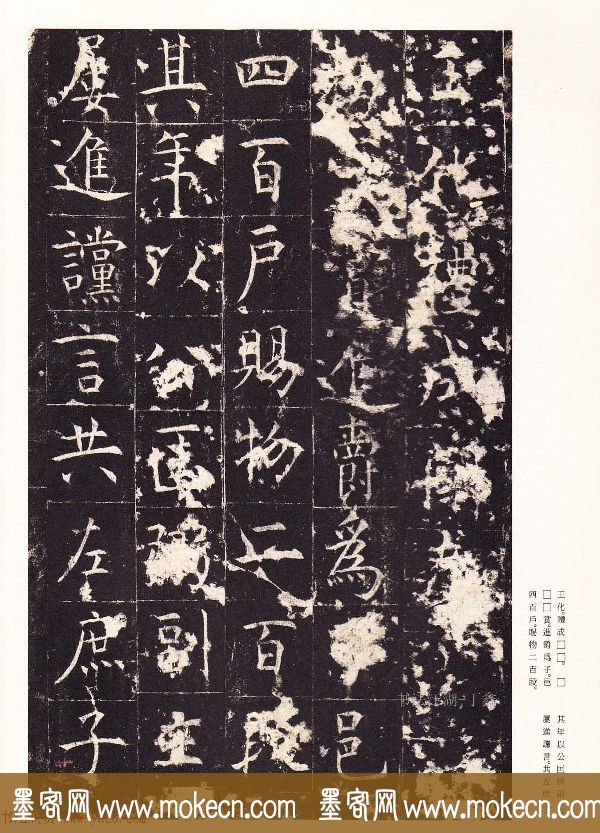 王化禮成
賞進爵為子邑
四百戶賜物二百段
其年以公匡弼副主
屢進讜言共左庶子
王化。禮成□□。□
□□賞。進爵為子。邑
四百戶。賜物二百段。
其年以公匡
屢進讜言。共左庶
墨客网 www.mokecn.com 墨客网 www.mokecn.com